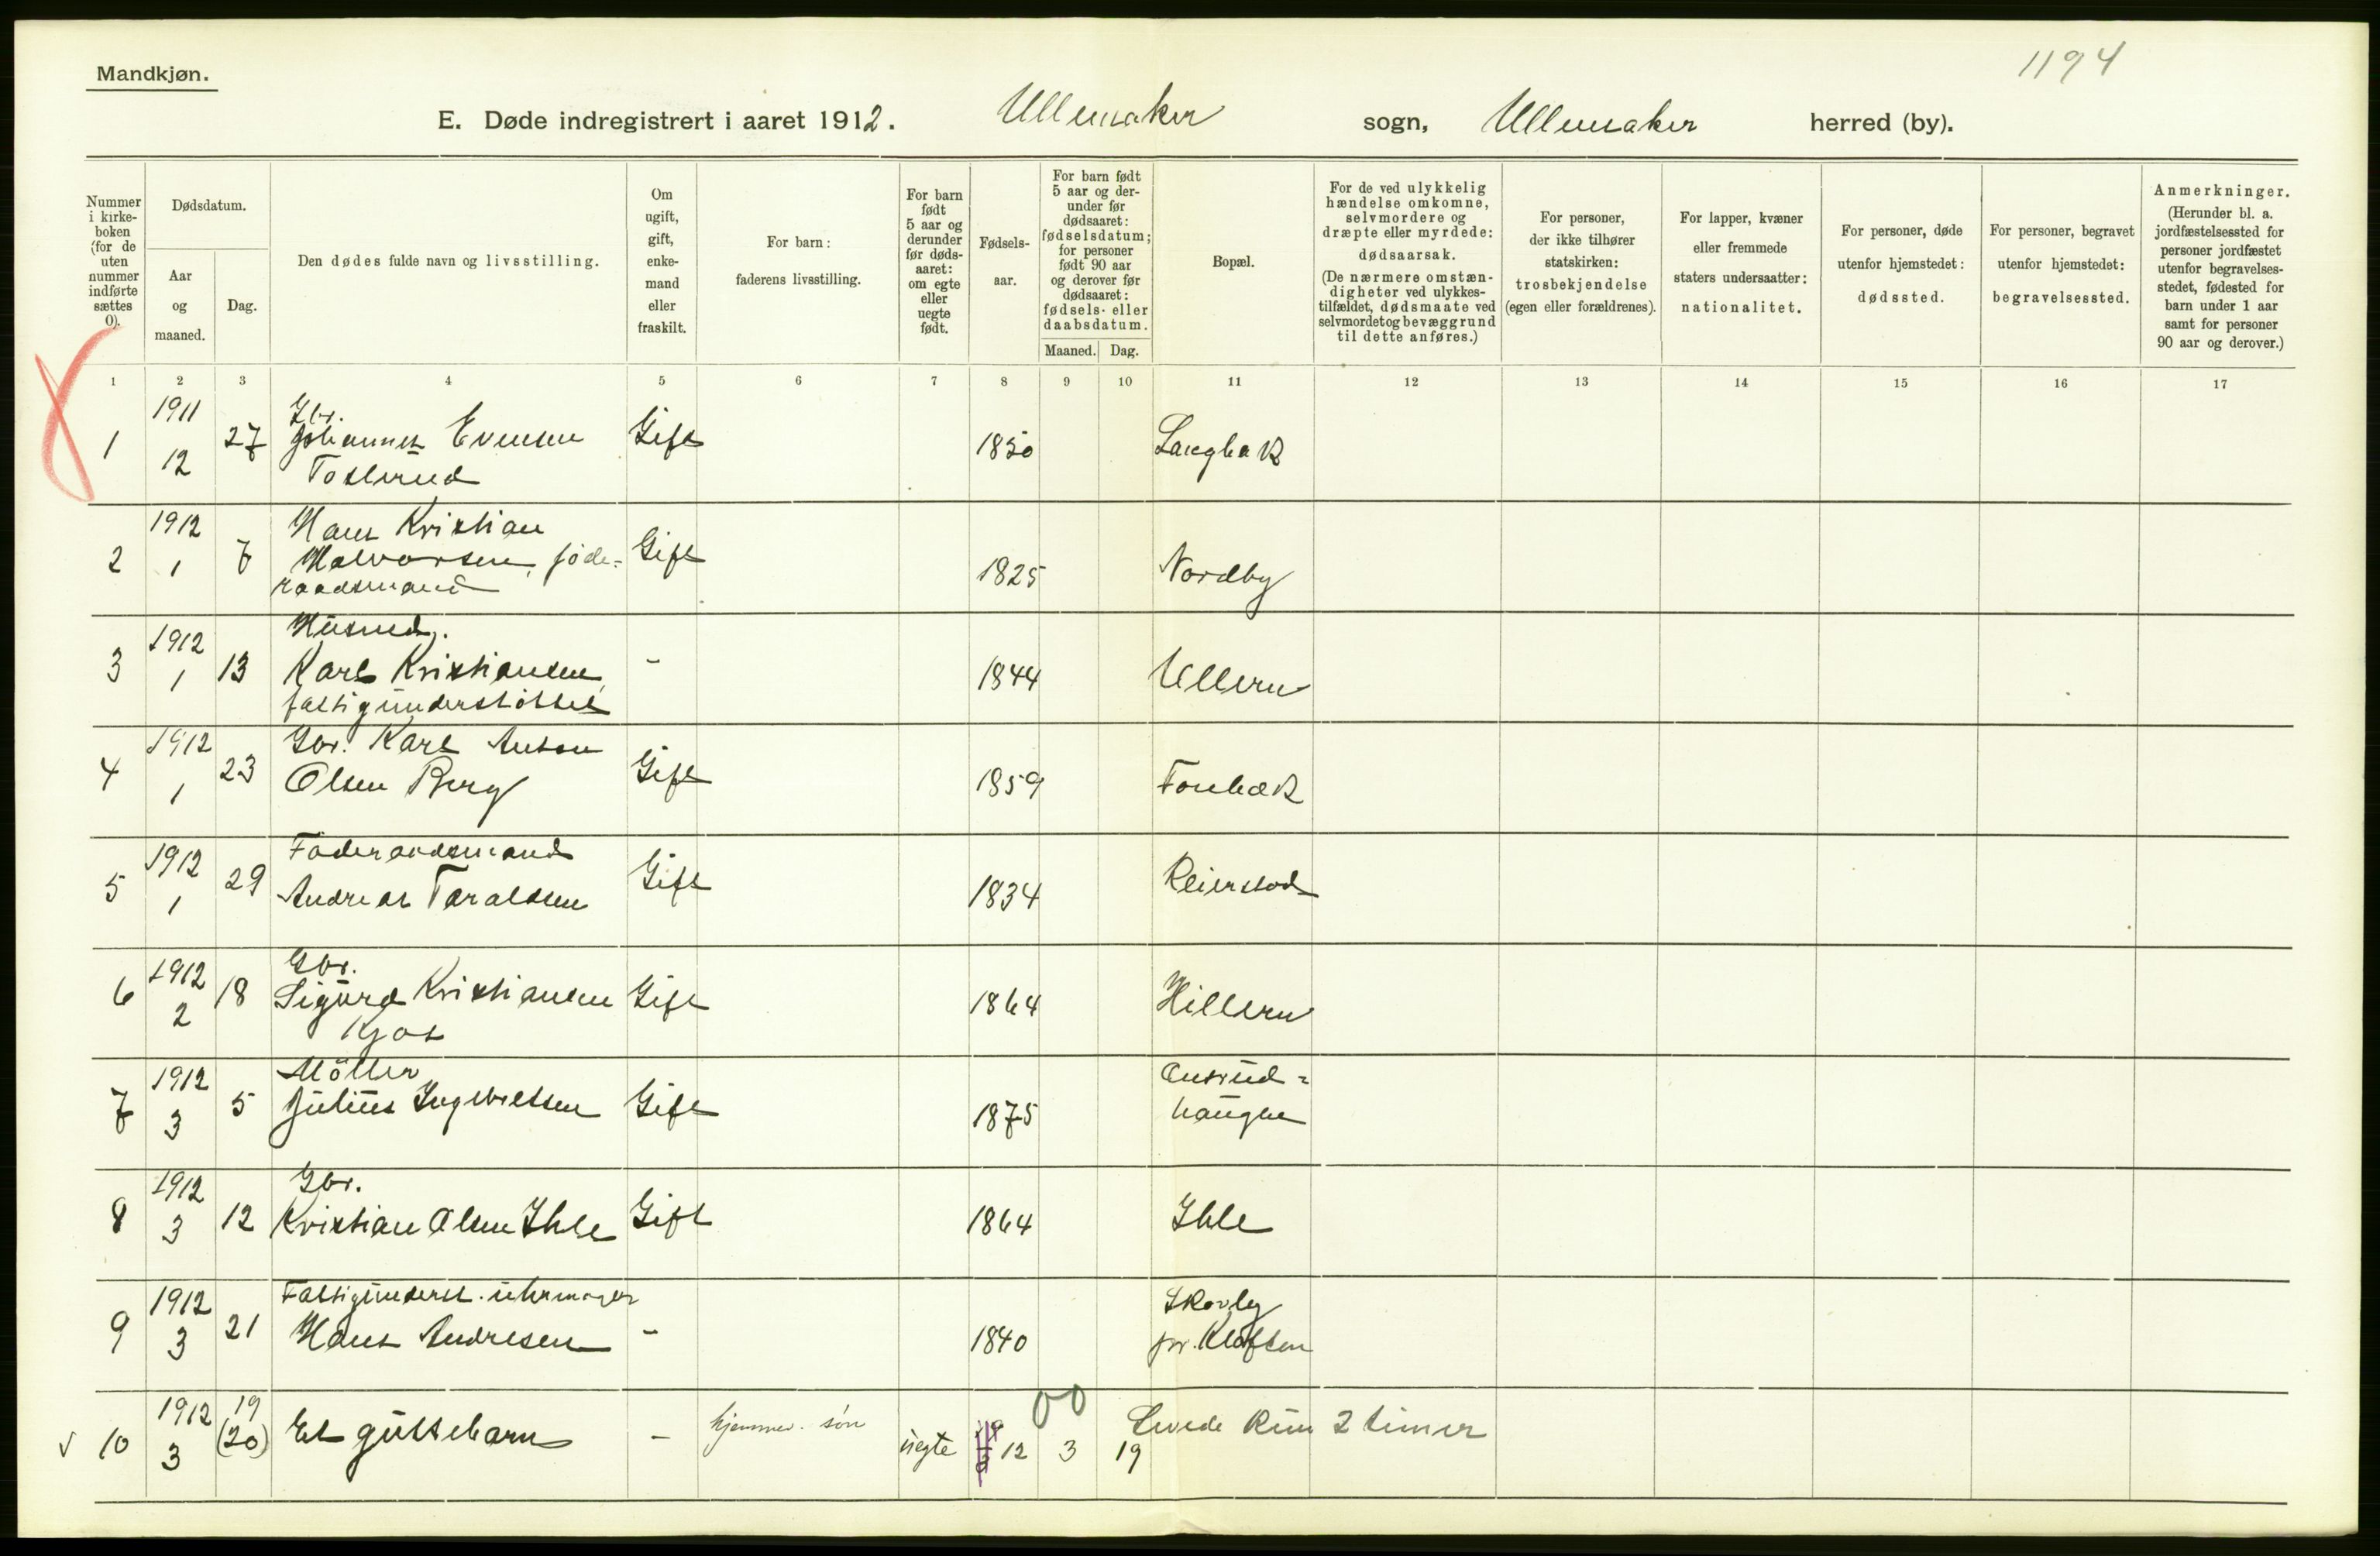 1194
Mandkjøn.
E. Døde indregistrert i aaret 1912. Ullensaker sogn, Ullensaker herred (by).
Nummer i kirke-boken (for de uten nummer indførte sættes 0).
Dødsdatum.
Aar og maaned.
Dag.
Den dødes fulde navn og livsstilling.
Om ugift, gift, enke-mand eller fraskilt.
For barn: faderens livsstilling.
For barn født 5 aar og derunder før døds-aaret: om egte eller uegte født.
Fødsels-aar.
For barn født 5 aar og der-under før dødsaaret: fødselsdatum; for personer født 90 aar og derover før dødsaaret: fødsels- eller daabsdatum.
Maaned. Dag.
Bopæl.
For de ved ulykkelig hændelse omkomne, selvmordere og dræpte eller myrdede: dødsaarsak. (De nærmere omstæn-digheter ved ulykkes-tilfældet, dødsmaate ved selvmordet og bevæggrund til dette anføres.)
For personer, der ikke tilhører statskirken: trosbekjendelse (egen eller forældrenes).
For lapper, kvæner eller fremmede staters undersaatter: nationalitet.
For personer, døde utenfor hjemstedet: dødssted.
For personer, begravet utenfor hjemstedet: begravelsessted.
Anmerkninger. (Herunder bl. a. jordfæstelsessted for personer jordfæstet utenfor begravelses-stedet, fødested for barn under 1 aar samt for personer 90 aar og derover.)
1 2 3 4 5 6 7 8 9 10 11 12 13 14 15 16 17
1 1911 12 27 Gbr. Johannes Evensen Toslerud Gift 1850 Langbak
2 1912 1 7 Hans Kristian Halvorsen, føde=raadsmand Gift 1825 Nordby
3 1912 1 13 Husmd. Karl Kristiansen, fattigunderstøttet - 1844 Ullern
4 1912 1 23 Gbr. Karl Anton Olsen Berg Gift 1859 Fonbæk
5 1912 1 29 Føderaadsmand Andreas Taraldsen Gift 1834 Reierstad
6 1912 2 18 Gbr. Sigurd Kristiansen Kjos Gift 1864 Hillern
7 1912 3 5 Möller Julius Ingebretsen Gift 1875 Onsrud=haugen
8 1912 3 12 Gbr. Kristian Olsen Ihle Gift 1864 Ihle
9 1912 3 21 Fattigunderst. uhrmager Hans Andresen - 1840 Skovly pr. Kløften
00
10 1912 3 19 (20) Et guttebarn - hjemmev. søn uegte 12 3 19 Levede kun 2 timer